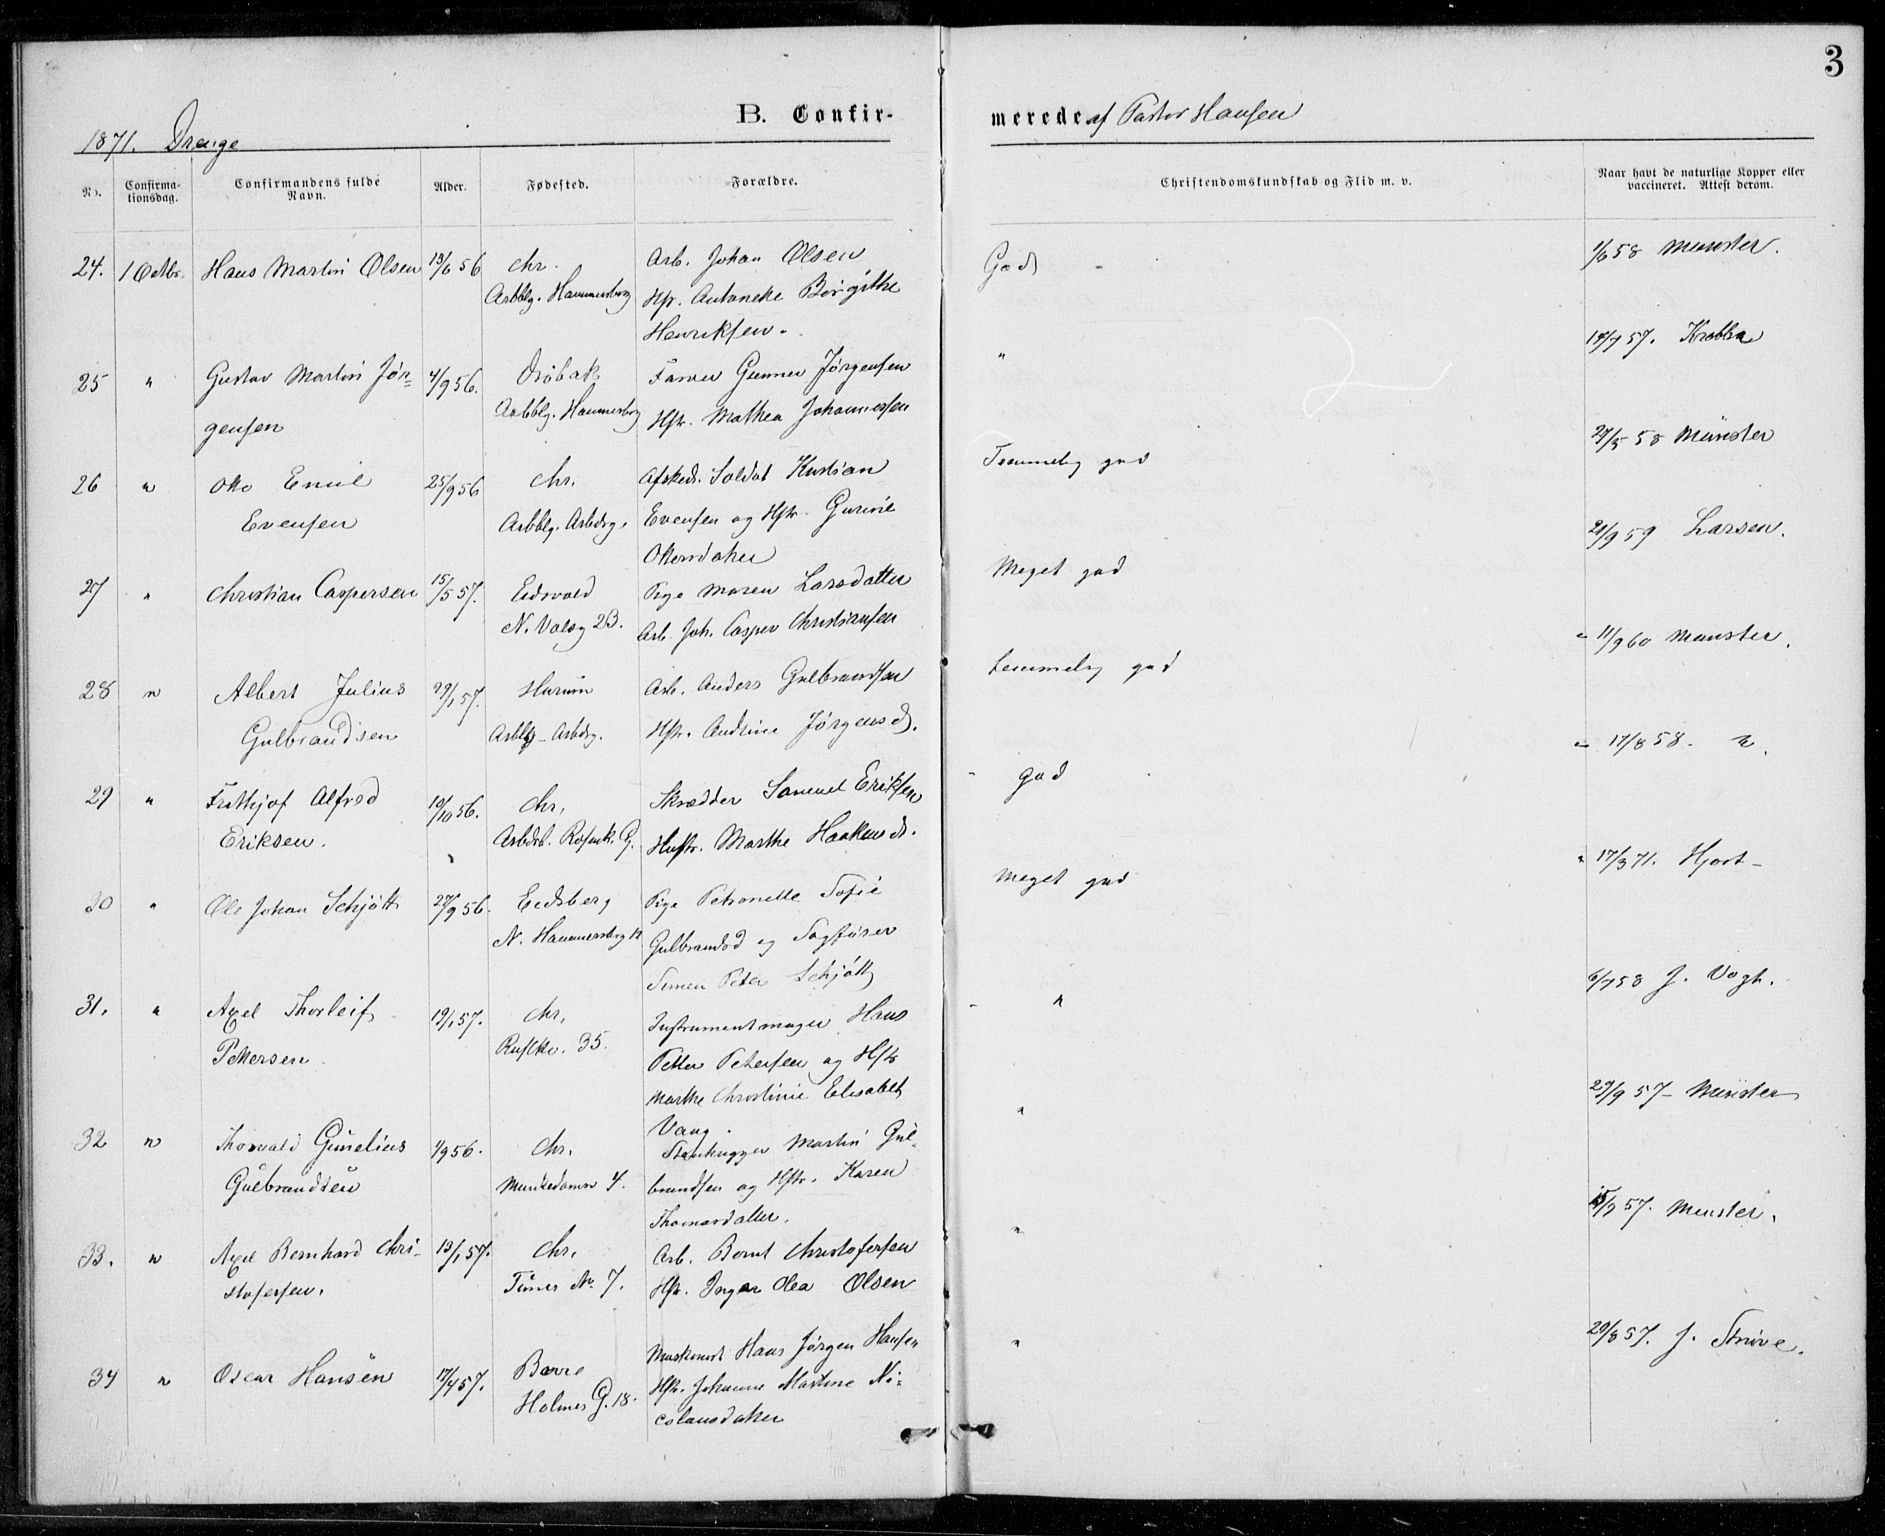 3
B. Confir-
merede af Pastor Hansen
1871. Drenge
No.
Confirma-
tionsdag.
Confirmandens fulde
Navn.
Alder.
Fødested.
Forældre.
Christendomskundskab og Flid m. v.
Naar havt de naturlige Kopper eller
vaccineret. Attest derom.
24. 1 Octbr. Hans Martin Olsen 13/6 56 Chr. Arb. Johan Olsen God 1/6 58 Munster.
Arbblg. Hammersborg Hst. Antoneke Birgithe
Henriksen.
25 " Gustav Martin Jør- 4/9 56. Drøbak Farver Gunner Jørgensen " 14/7 57. Krabbe
gensen Arbblg. Hammersborg Hstr. Mathea Johannessen
26 " Otto Emil 25/9 56 Chr. Afsked. Soldat Kristian Temmelig god 27/5 58 Münster
Evensen Arbblg. Arbdrg. Evensen og Hstr. Gurine
Ottersdatter
27 " Christian Caspersen 15/5 57. Eidsvold Pige Maren Larsdatter Meget god 21/9 59 Larsen.
N. Volsg 23. Arb. Joh. Casper Christiansen
28 " Albert Julius 29/1 57. Hurum Arb. Anders Gulbrandsen temmelig god " 11/9 60 Munster.
Gulbrandsen Arbblg. Arbdrg. Hstr. Andrine Jørgensd.
29 " Frithjof Alfred 10/10 56. Chr. Skrædder Samuel Eriksen god " 17/8 58. "
Eriksen. Arbdsb. Rosenk. G. Hustr. Marthe Haakensd.
30 " Ole Johan Schjøtt 27/9 56. Eidsberg Pige Petronelle Sofie Meget god " 17/3 71. Hjort
N. Hammersborg 12 Gulbrandsd og Sagfører
Simen Peter Schjøtt
31. " Axel Thorleif 19/1 57. Chr. Instrumentmager Hans " 6/7 58 J. Vogt.
Pettersen Ruslkv. 35. Petter Petersen og Hstr
Marthe Christine Elisabet
Vang.
32 " Thorvald Gunelius 1/9 56. Chr. Stenhugger Martin Gul- " 29/9 57 Münster
Gulbrandsen Munkedamsv 4. brandsen og Hstr. Karen
Thomasdatter.
33. " Axel Bernhard Chri- 13/1 57. Chr. Arb. Bernt Christofersen " 15/7 57. Munster.
stofersen. No. 7. Hstr. Inger Olea Olsen
34 " Oscar Hansen 17/4 57. Borre Maskinist Hans Jørgen Hansen " 29/8 57. J. Struve.
Holmes G. 18. Hstr. Johanne Martine Ni-
colausdatter